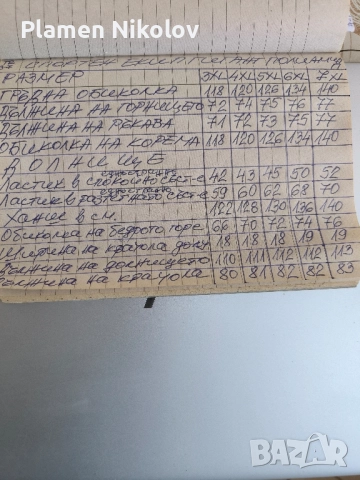 Plamen Nikolov
СПОРТЕН ЕКИП ГИГАНТ ПОЛИАМИД
РАЗМЕР 3XL 4XL 5XL 6XL 7XL
ГРЪДНА ОБИКОЛКА 118 120 126 134 140
ДЪЛЖИНА НА ГОРНИЩЕТО 72 74 75 76 77
ДЪЛЖИНА НА РЪКАВА 71 72 73 75 77
ОБИКОЛКА НА КОРЕМА 118 120 126 134 140
ДОЛНИЩЕ
Ластик в спокойно свст-е 42 43 45 50 52
Ластик в разтегнато свст-е 59 60 62 68 70
Ханш в см. 122 128 130 136 140
Обиколка на бедрото горе 66 70 72 74 76
Ширина на крачола долу 18 18 18 19 19
Дължина на долнището 110 111 112 112 113
Дължина на крачола 80 81 82 82 83
BAZAR
bg